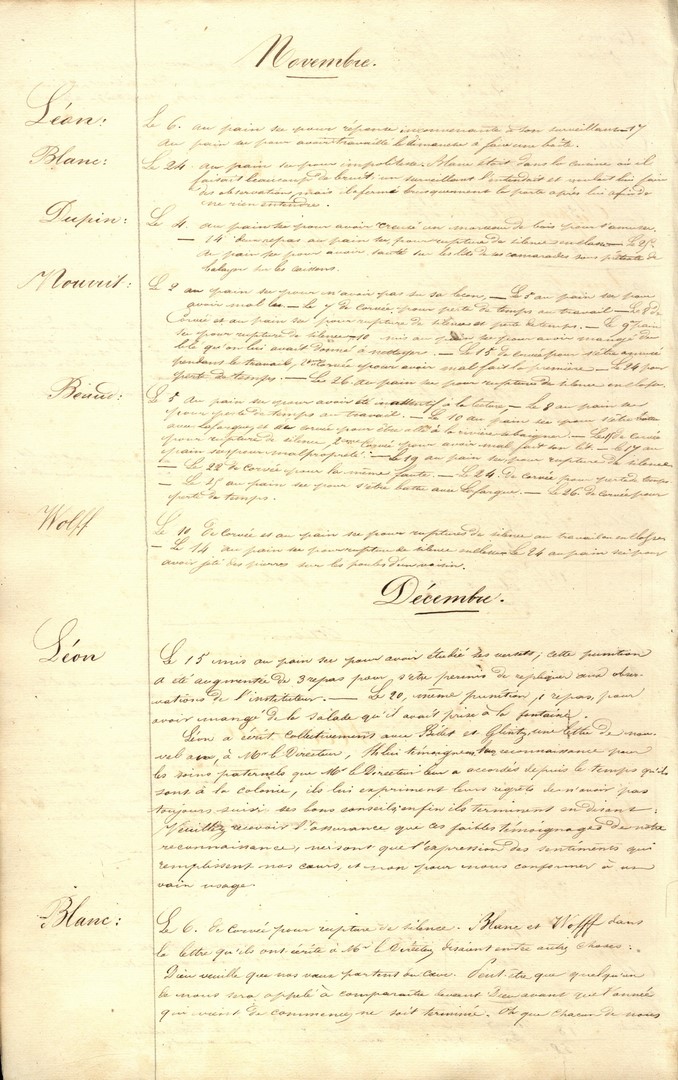 Novembre.
Léon: Le 6. au pain sec pour réponse inconvenante à son surveillant — 17
au pain sec pour avoir travaillé le dimanche à faire une boîte.
Blanc: Le 24. au pain sec pour impolitesse. Blanc était dans la cuisine où il
faisait beaucoup de bruit, un surveillant l'entendait et voulait lui faire
des observations, mais il ferma brusquement la porte après lui afin de
ne rien entendre.
Dupin: Le 4. au pain sec pour avoir creusé un morceau de bois pour s'amuser.
— 14 deux repas au pain sec, pour rupture de silence en classe — Le 25
au pain sec pour avoir sauté sur les lits de ses camarades sous prétexte de
balayer sur les caissons.
Nouvrit: Le 2 au pain sec pour n'avoir pas su sa leçon. — Le 5 au pain sec pour
avoir mal lu. — Le 7 de corvée, pour perte de temps au travail — Le 8 de
Corvée et au pain sec pour rupture de silence et perte de temps. — Le 9 pain
sec pour rupture de silence — 10 mis au pain sec pour avoir mangé du
blé qu'on lui avait donné à nettoyer. — Le 15 de corvée pour s'être amusé
pendant le travail, 2e corvée pour avoir mal fait la première — Le 24 pour
perte de temps. — Les 26 au pain sec pour rupture de silence en classe.
Le 5 au pain sec pour avoir été inattentif à la lecture — Le 8 au pain sec
pour perte de temps au travail. — Le 10 au pain sec pour s'être battu
avec Lafarque, et de corvée pour être allé à la rivière se baigner. — Le de corvée
pour rupture de silence, 2me Corvée pour avoir mal fait son lit. — Le 17 au
pain sec pour malpropreté. — Le 19 au pain sec pour rupture de silence
— Le 22 de Corvée pour la même faute. — Le 24 de corvée pour perte de temps
— Le 25 au pain sec pour s'être battu avec Lafarque. — Le 26 de corvée pour
perte de temps.
Wolff Le 10 de Corvée et au pain sec pour ruptures de silence au travail et en classe
— Le 14 au pain sec pour rupture de silence en classe Le 24 au pain sec pour
avoir jeté des pierres sur les poules d'un voisin.
Décembre.
Léon Le 15 mis au pain sec pour avoir étudié ses versets; cette punition
a été augmentée de 3 repas pour s'être permis de répliquer aux obser-
vations de l'instituteur. — Le 20, même punition, repas, pour
avoir mangé de la salade qu'il avait prise à la fontaine.
Léon a écrit collectivement avec et une lettre de nou-
vel an, à Mr le Directeur, Ils lui témoignent leur reconnaissance pour
les soins paternels que Mr le Directeur leur a accordés depuis le temps qu'ils
sont à la colonie, ils lui expriment leurs regrets de n'avoir pas
toujours suivi ses bons conseils; enfin ils terminent en disant:
Veuillez recevoir l'assurance que ces faibles témoignages de notre
reconnaissance, ne sont que l'expression des sentiments qui
remplissent nos cœurs, et non pour nous conformer à un
vain usage.
Blanc: Le 6. de corvée pour rupture de silence. Blanc et Wolff dans
la lettre qu'ils ont écrite à Mr le Directeur disaient entre autres choses:
Dieu veuille que nos vœux partent du cœur. Peut-être que quelqu'un
de nous sera appelé à comparaître devant Dieu avant que l'année
qui vient de commencer, ne soit terminée. Oh que chacun de nous